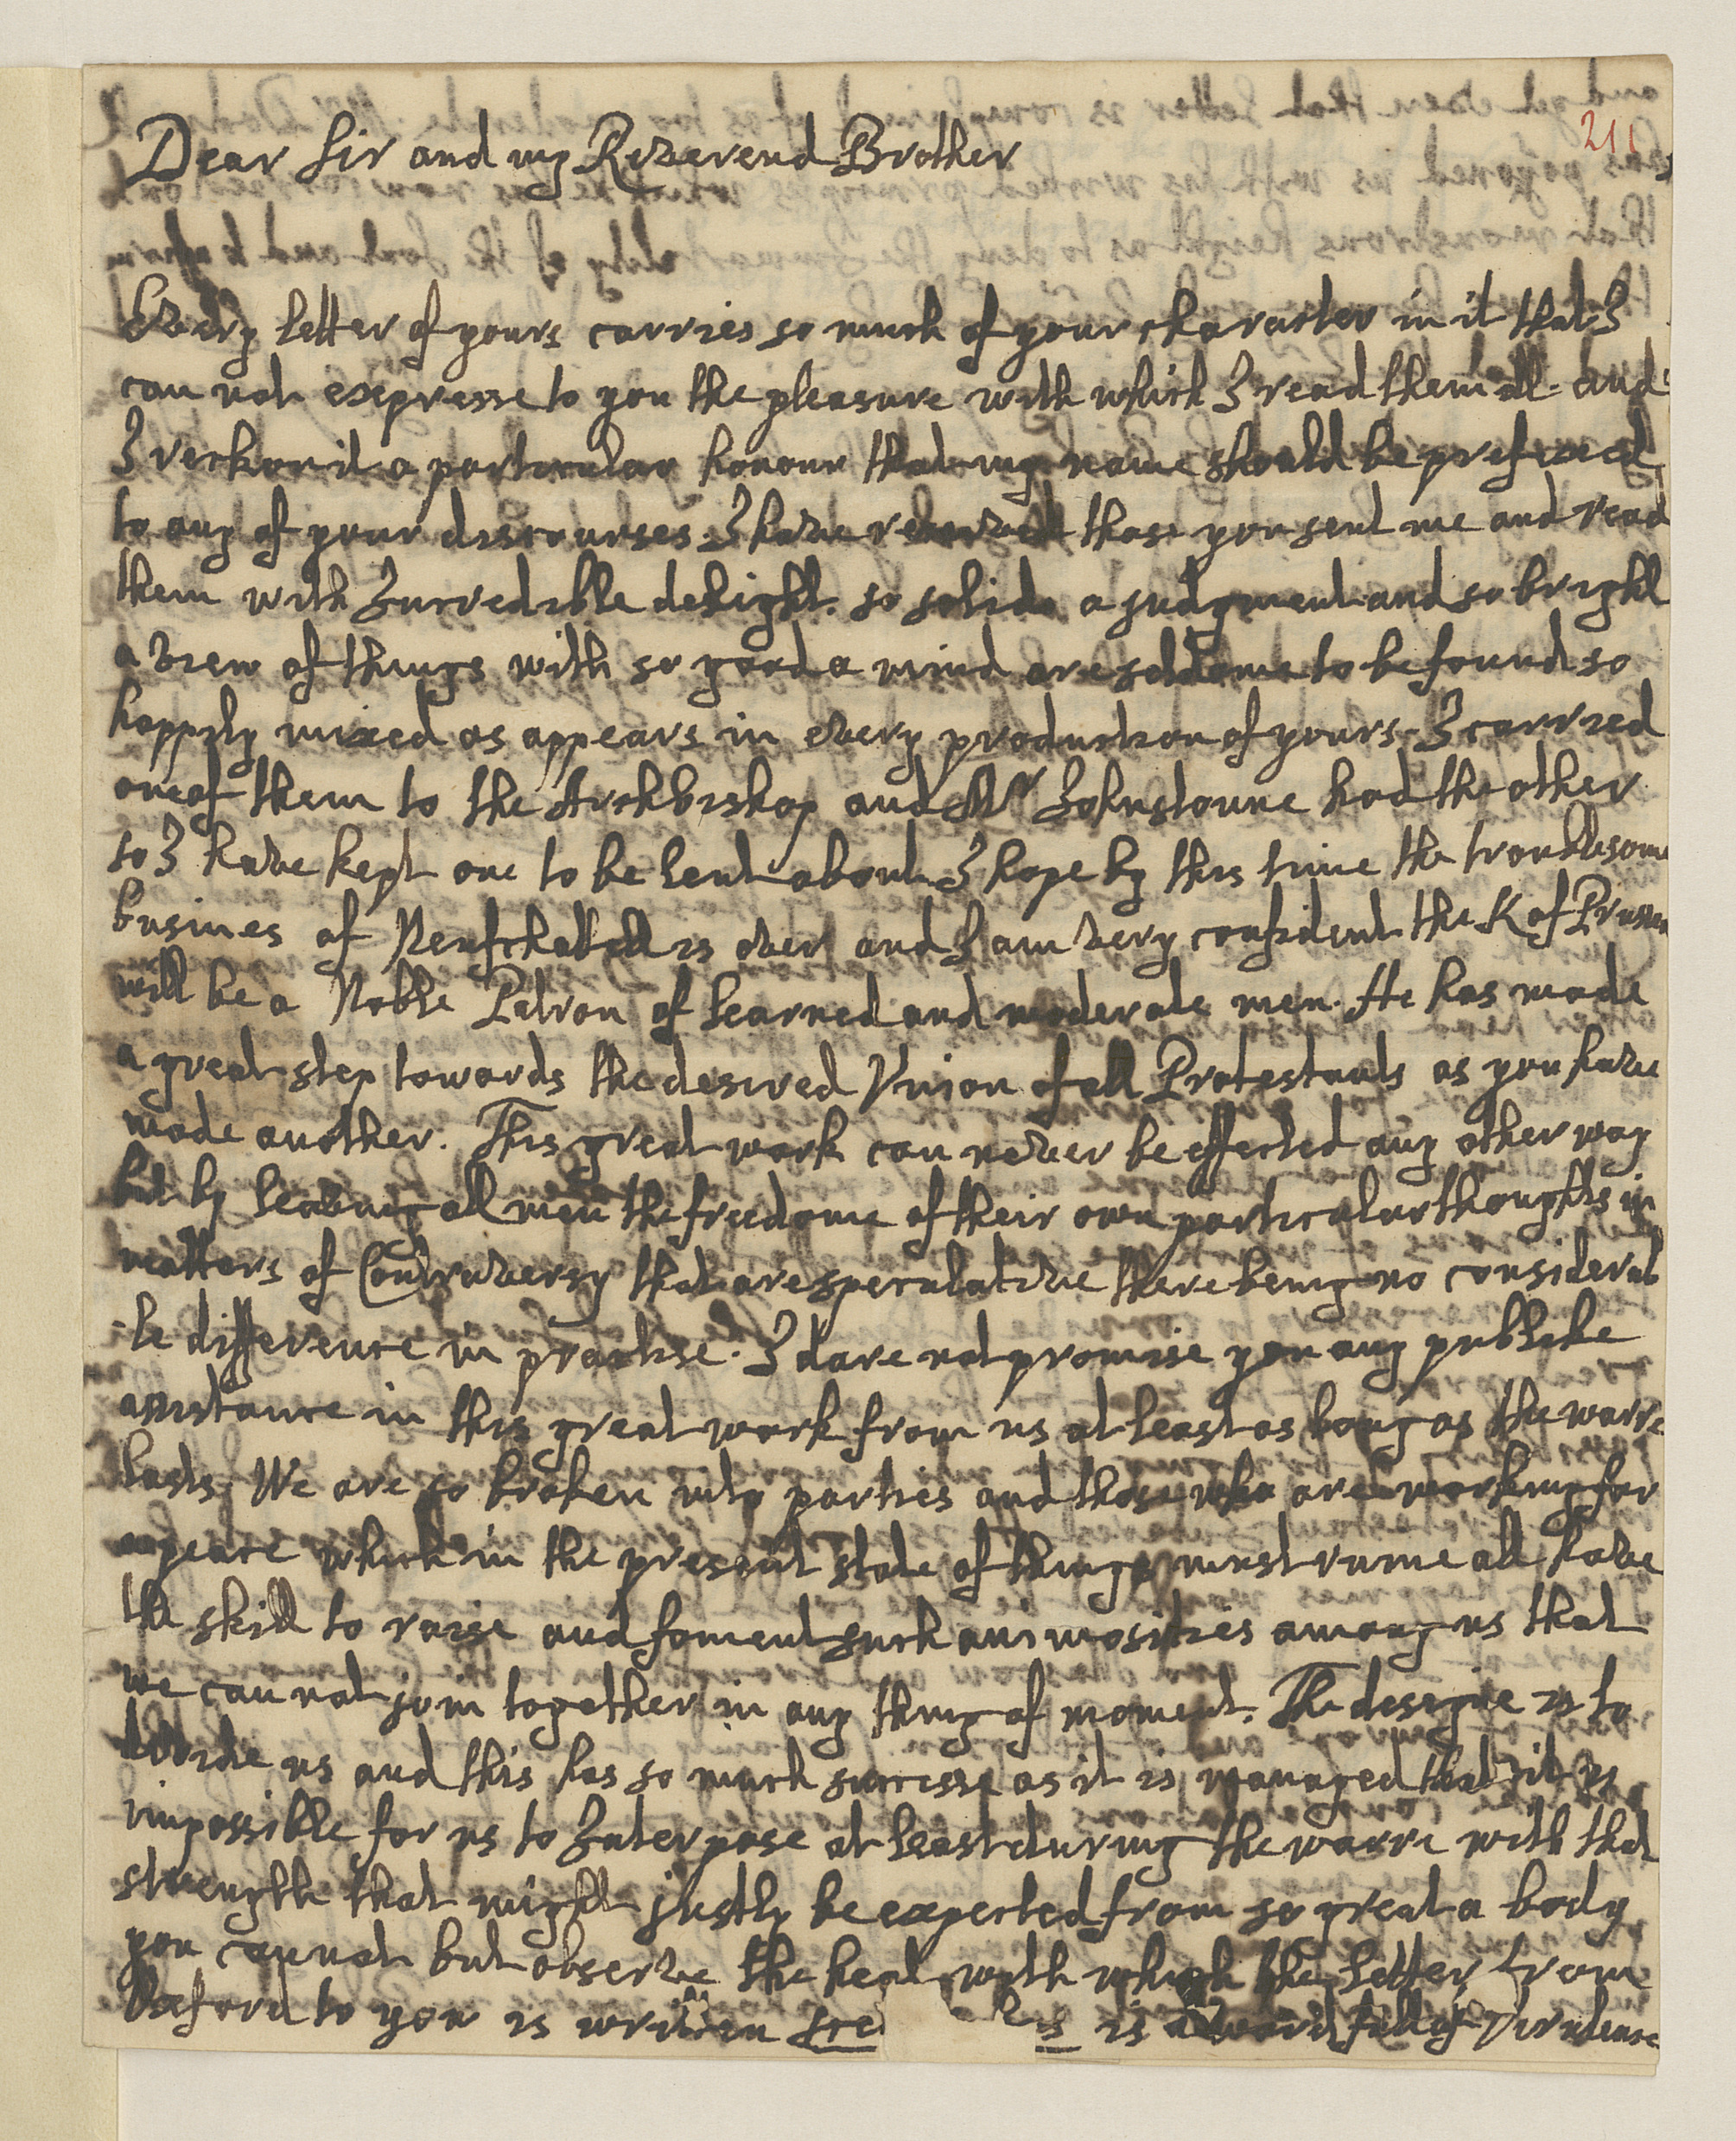 211
Dear Sir and my Reverend Brother
Every letter of yours carries so much of your character in it that I
can not expresse to you the pleasure with which I read them all. and
I reckon it a particular honour that my name should be prefixed
to any of your discourses. I have received those you sent me and read
them with Incredible delight. so solide a judgment and so bright
a view of things with so good a mind are seldome to be found so
happily mixed as appears in every production of yours. I carried
one of them to the Archbishop and Mr Johnstoune had the other
so I have kept one to be lent about. I hope by this time the troublesome
busines of Neufchattell is over and I am very confident the K of Prussia
will be a Noble Patron of learned and moderate men. He has made
a great step towards the desired Union of all Protestants as you have
made another. This great work can never be effected any other way
but by leaving all men the freedome of their own particular thoughts in
matters of Controversy that are speculative there being no considerab
-le difference in practise. I dare not promise you any publike
assistance in this great work from us at least as long as the warre
lasts. We are so broken into parties and those who are working for
a peace which in the present state of things must ruine all have
the skill to raise and foment such animosities among us that
we can not join together in any thing of moment. The designe is to
divide us and this has so much successe as it is managed that it is
impossible for us to Interpose at least during the warre with that
strength that might justly be expected from so great a body
you cannot but observe the heat with which the letter from
Oxford to you is written is a word full of Virulence